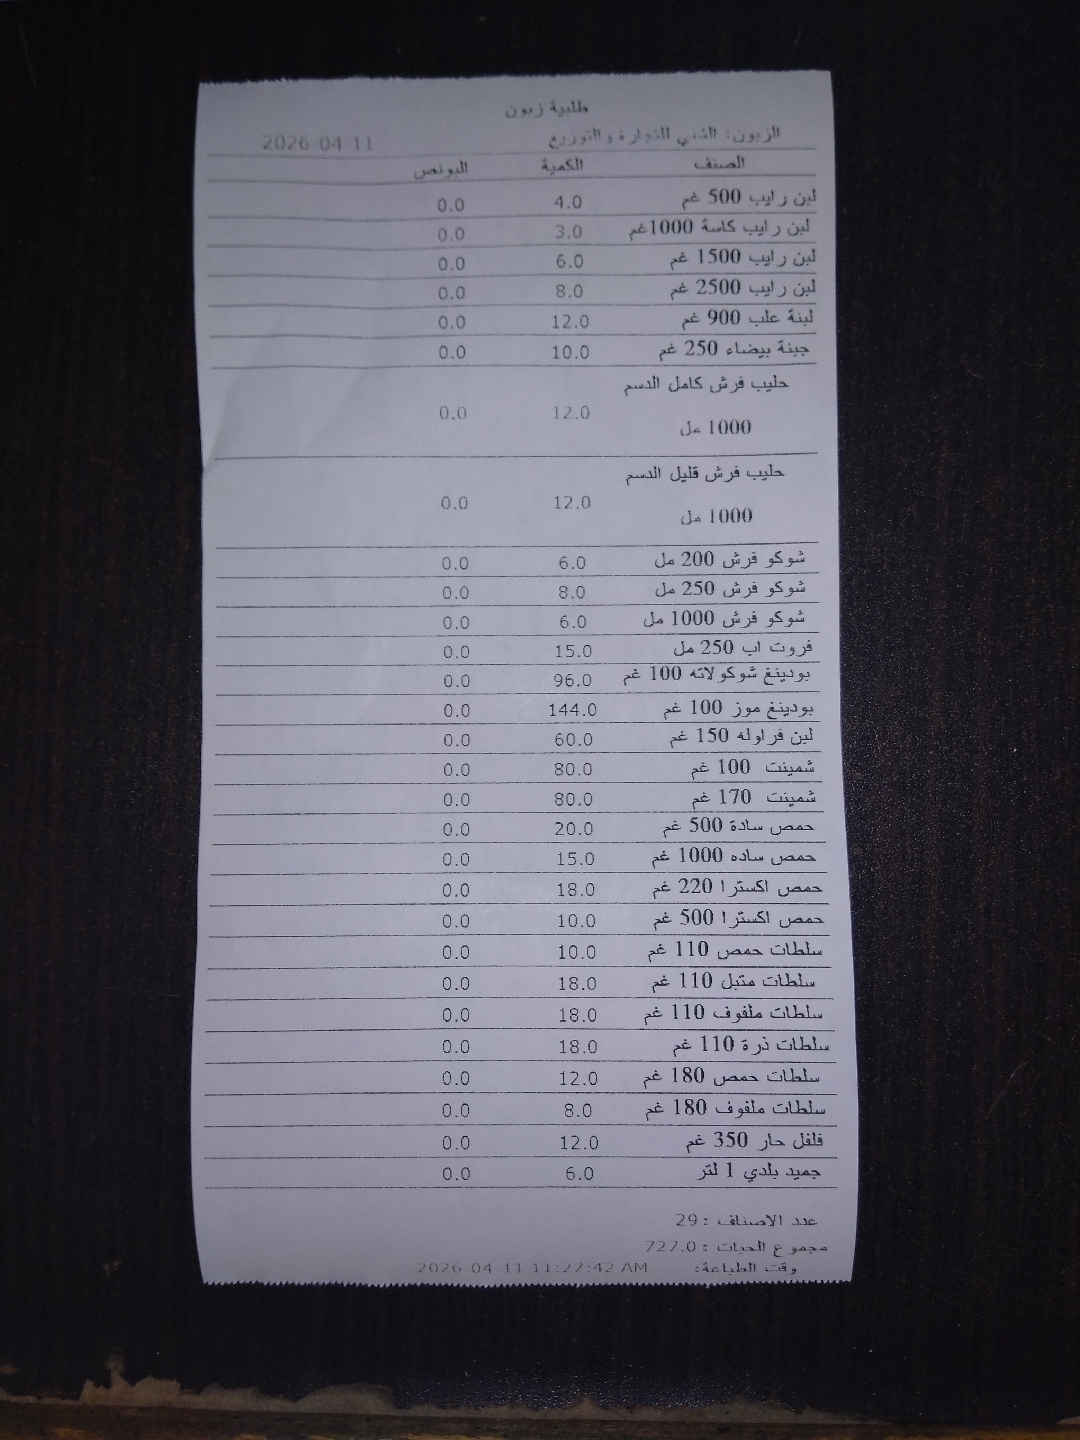 طلبية زبون
الزبون: الشني للتجارة والتوزيع 2026-04-11
الصنف الكمية البونص
لبن رايب 500 غم 4.0 0.0
لبن رايب كاسة 1000غم 3.0 0.0
لبن رايب 1500 غم 6.0 0.0
لبن رايب 2500 غم 8.0 0.0
لبنة علب 900 غم 12.0 0.0
جبنة بيضاء 250 غم 10.0 0.0
حليب فرش كامل الدسم
1000 مل 12.0 0.0
حليب فرش قليل الدسم
1000 مل 12.0 0.0
شوكو فرش 200 مل 6.0 0.0
شوكو فرش 250 مل 8.0 0.0
شوكو فرش 1000 مل 6.0 0.0
فروت اب 250 مل 15.0 0.0
بودينغ شوكولاته 100 غم 96.0 0.0
بودينغ موز 100 غم 144.0 0.0
لبن فراوله 150 غم 60.0 0.0
شمينت 100 غم 80.0 0.0
شمينت 170 غم 80.0 0.0
حمص سادة 500 غم 20.0 0.0
حمص ساده 1000 غم 15.0 0.0
حمص اكسترا 220 غم 18.0 0.0
حمص اكسترا 500 غم 10.0 0.0
سلطات حمص 110 غم 10.0 0.0
سلطات متبل 110 غم 18.0 0.0
سلطات ملفوف 110 غم 18.0 0.0
سلطات ذرة 110 غم 18.0 0.0
سلطات حمص 180 غم 12.0 0.0
سلطات ملفوف 180 غم 8.0 0.0
فلفل حار 350 غم 12.0 0.0
جميد بلدي 1 لتر 6.0 0.0
عدد الاصناف : 29
مجموع الحبات : 727.0
وقت الطباعة: 2026-04-11 11:27:42 AM